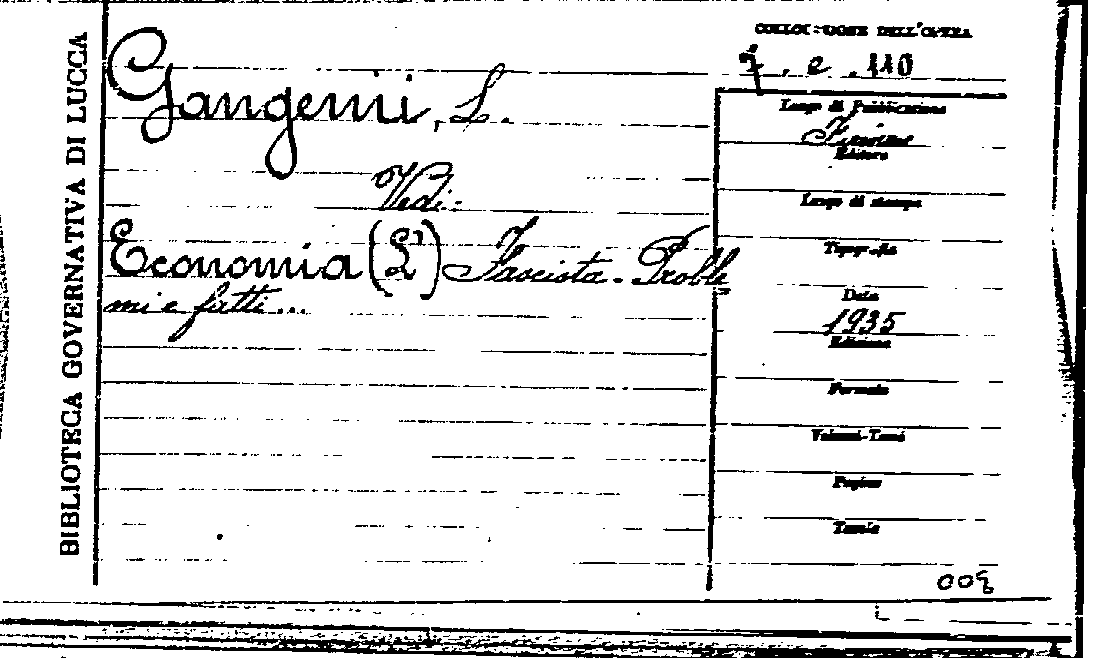 BIBLIOTECA GOVERNATIVA DI LUCCA
COLLOCAZIONE DELL'OPERA
7. e. 110
Gangemi, L.
Vedi:
Economia (L') Fascista - Proble
mi e fatti...
Luogo di Pubblicazione
Editore
Luogo di stampa
Tipografia
Data
1935
Edizione
Formato
Volumi-Tomi
Pagine
Tavole